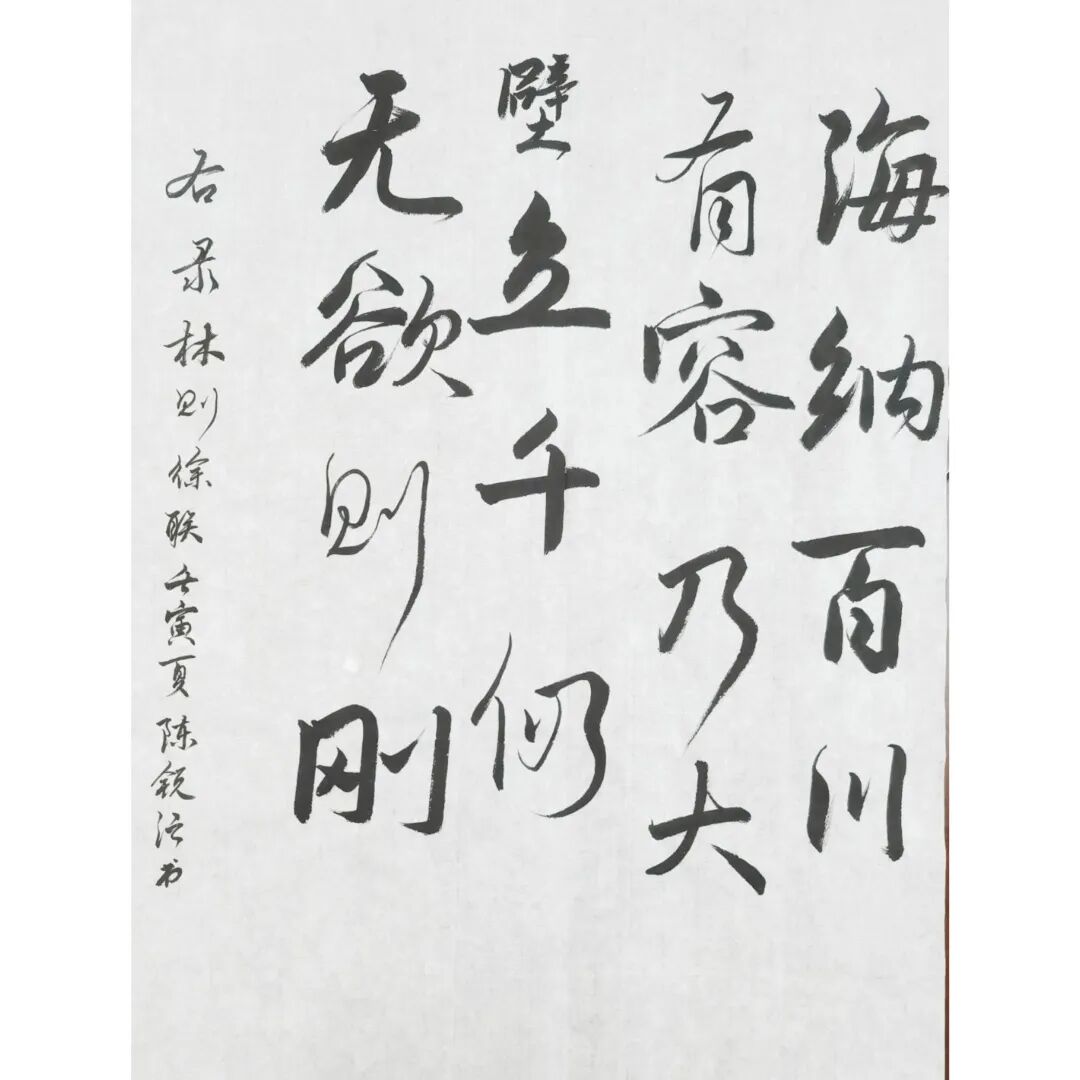 海纳百川
有容乃大
壁立千仞
无欲则刚
右录林则徐联壬寅夏陈锐书